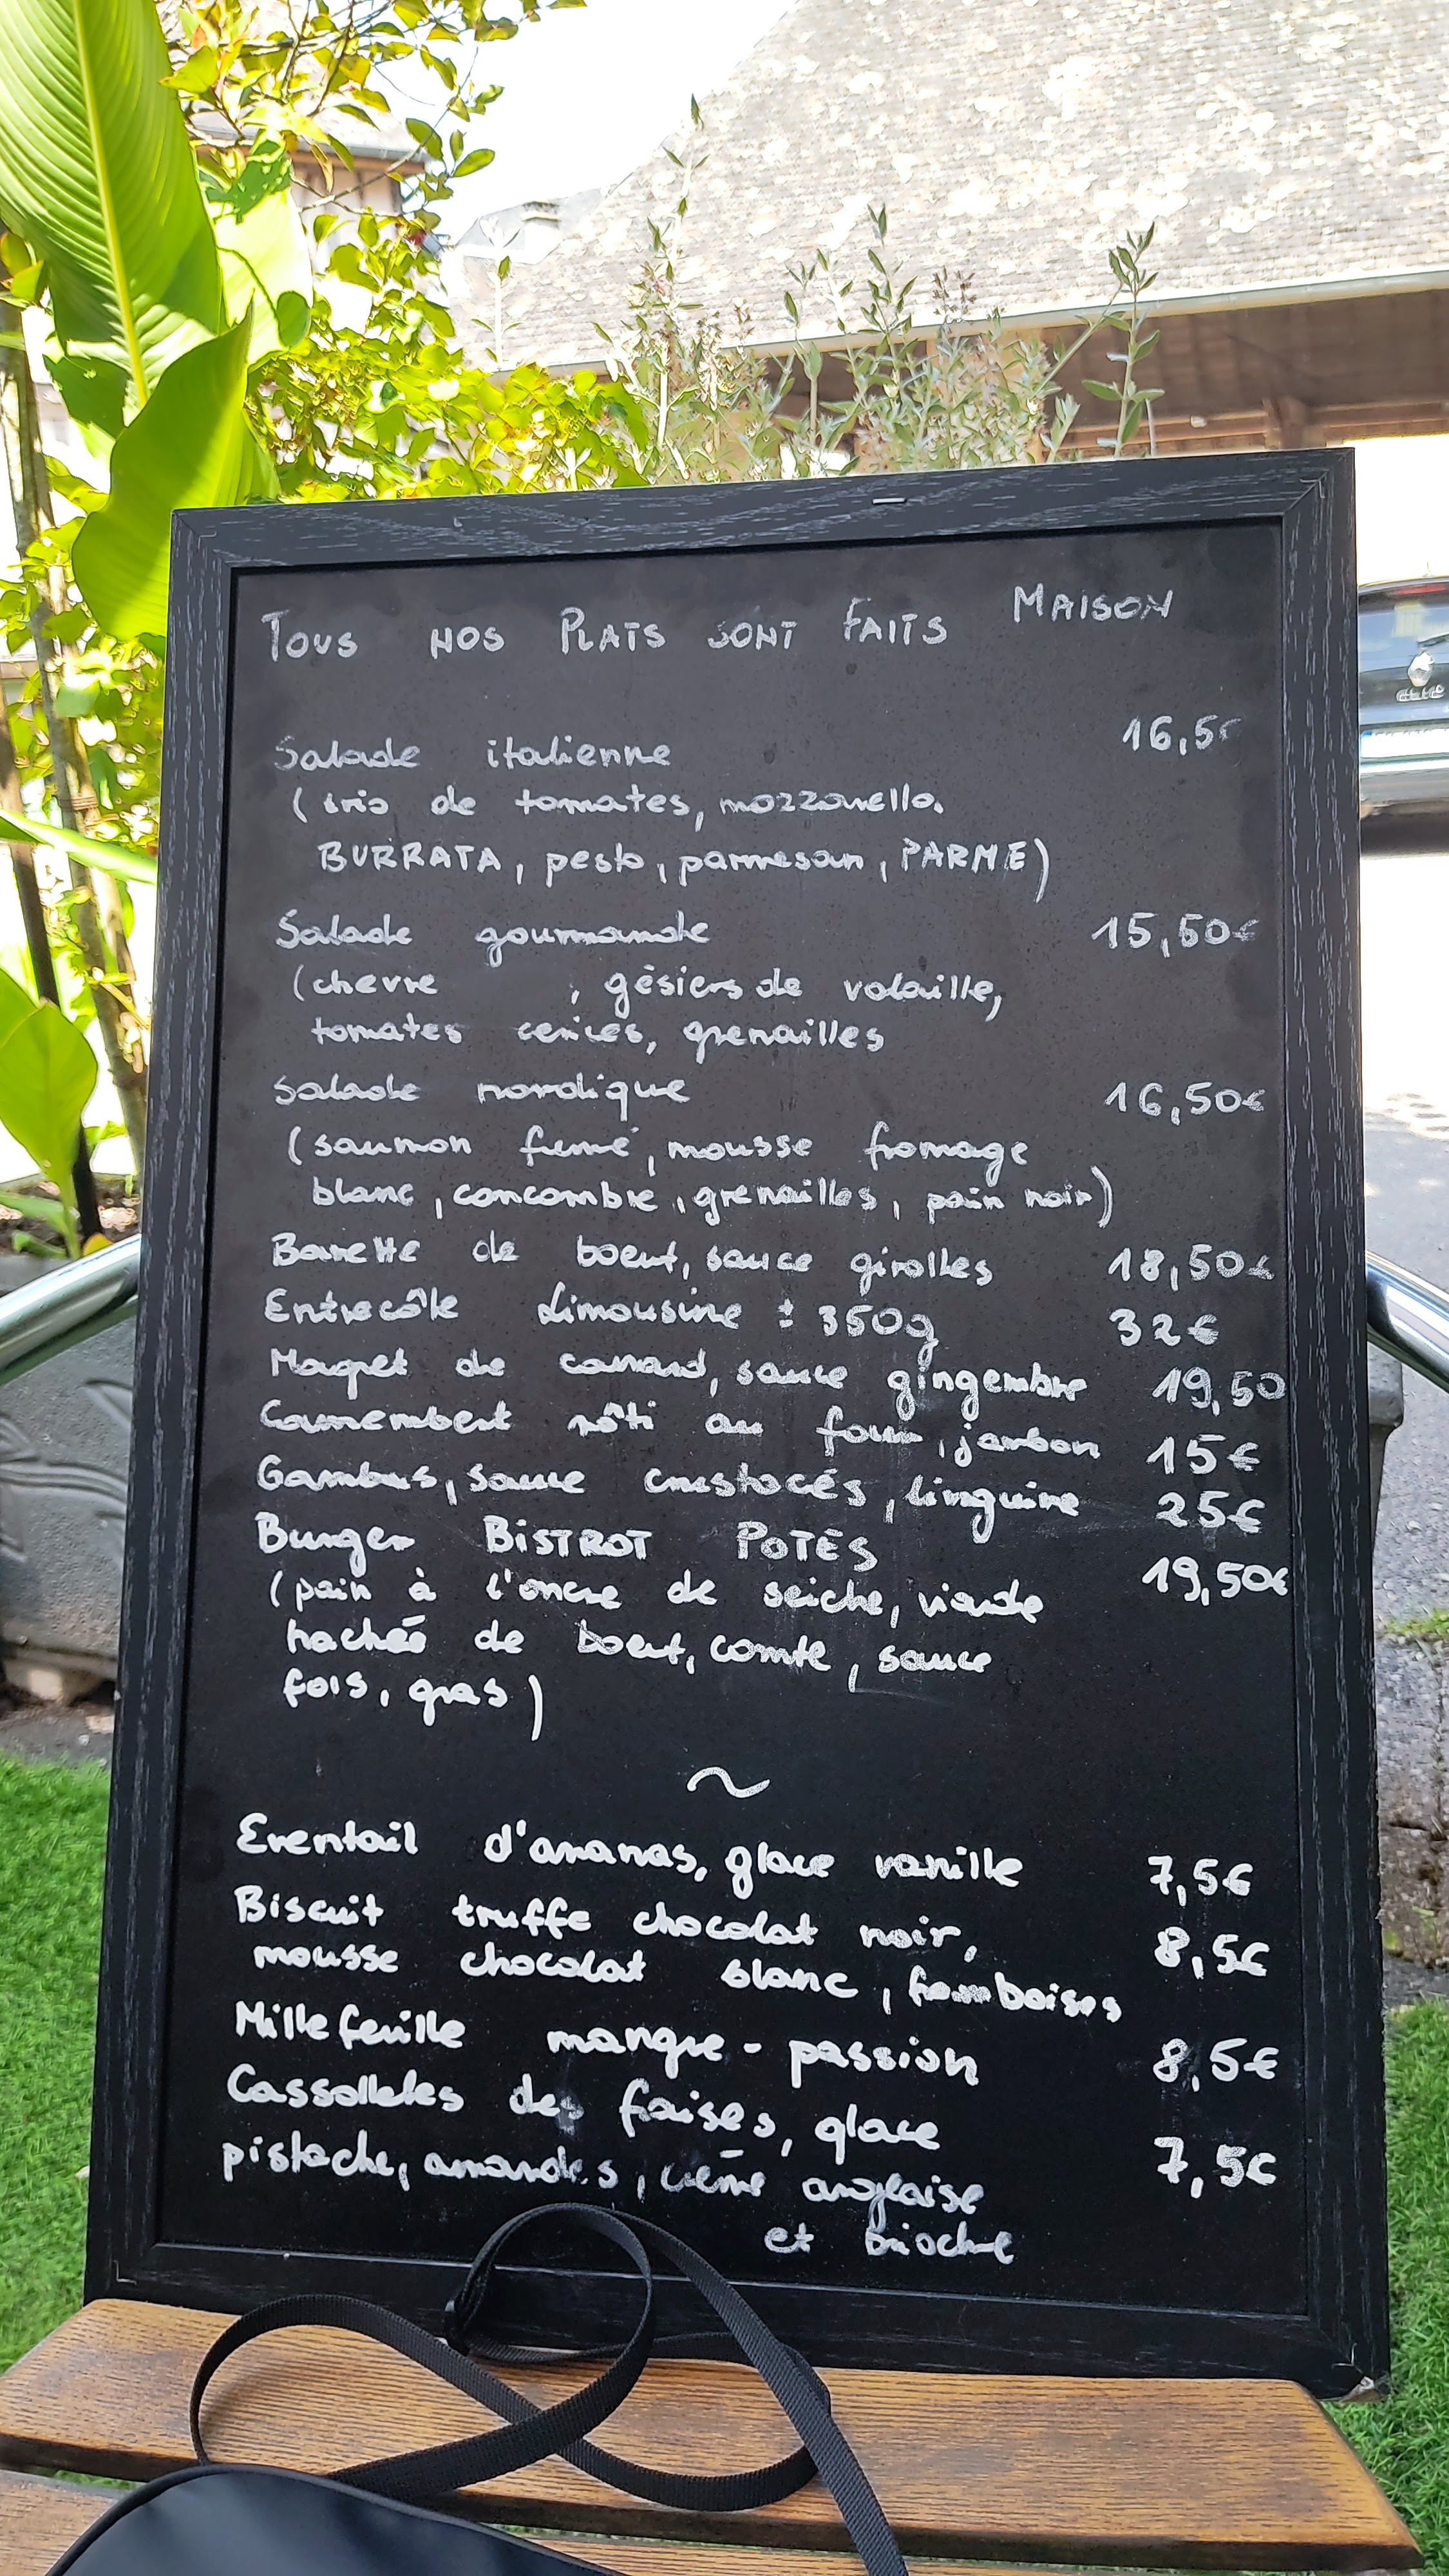 TOUS NOS PLATS SONT FAITS MAISON
Salade italienne 16,5€
(trio de tomates, mozzarella,
BURRATA, pesto, parmesan, PARME)
Salade gourmande 15,50€
(chevre , gésiers de volaille,
tomates cerices, grenailles
Salade nordique 16,50€
(saumon fumé, mousse fromage
blanc, concombre, grenailles, pain noir)
Bavette de boeuf, sauce girolles 18,50€
Entrecôte Limousine ± 350g 32€
Magret de canard, sauce gingembre 19,50
Camembert rôti au four, jambon 15€
Gambas, sauce crustacés, linguine 25€
Burger BISTROT POTES 19,50€
(pain à l'encre de seiche, viande
hachée de boeuf, comte, sauce
fois, gras)
~
Eventail d'ananas, glace vanille 7,5€
Biscuit truffe chocolat noir, 8,5€
mousse chocolat blanc, framboises
Millefeuille mangue - passion 8,5€
Cassolettes des fraises, glace
pistache, amandes, crème anglaise 7,5€
et brioche